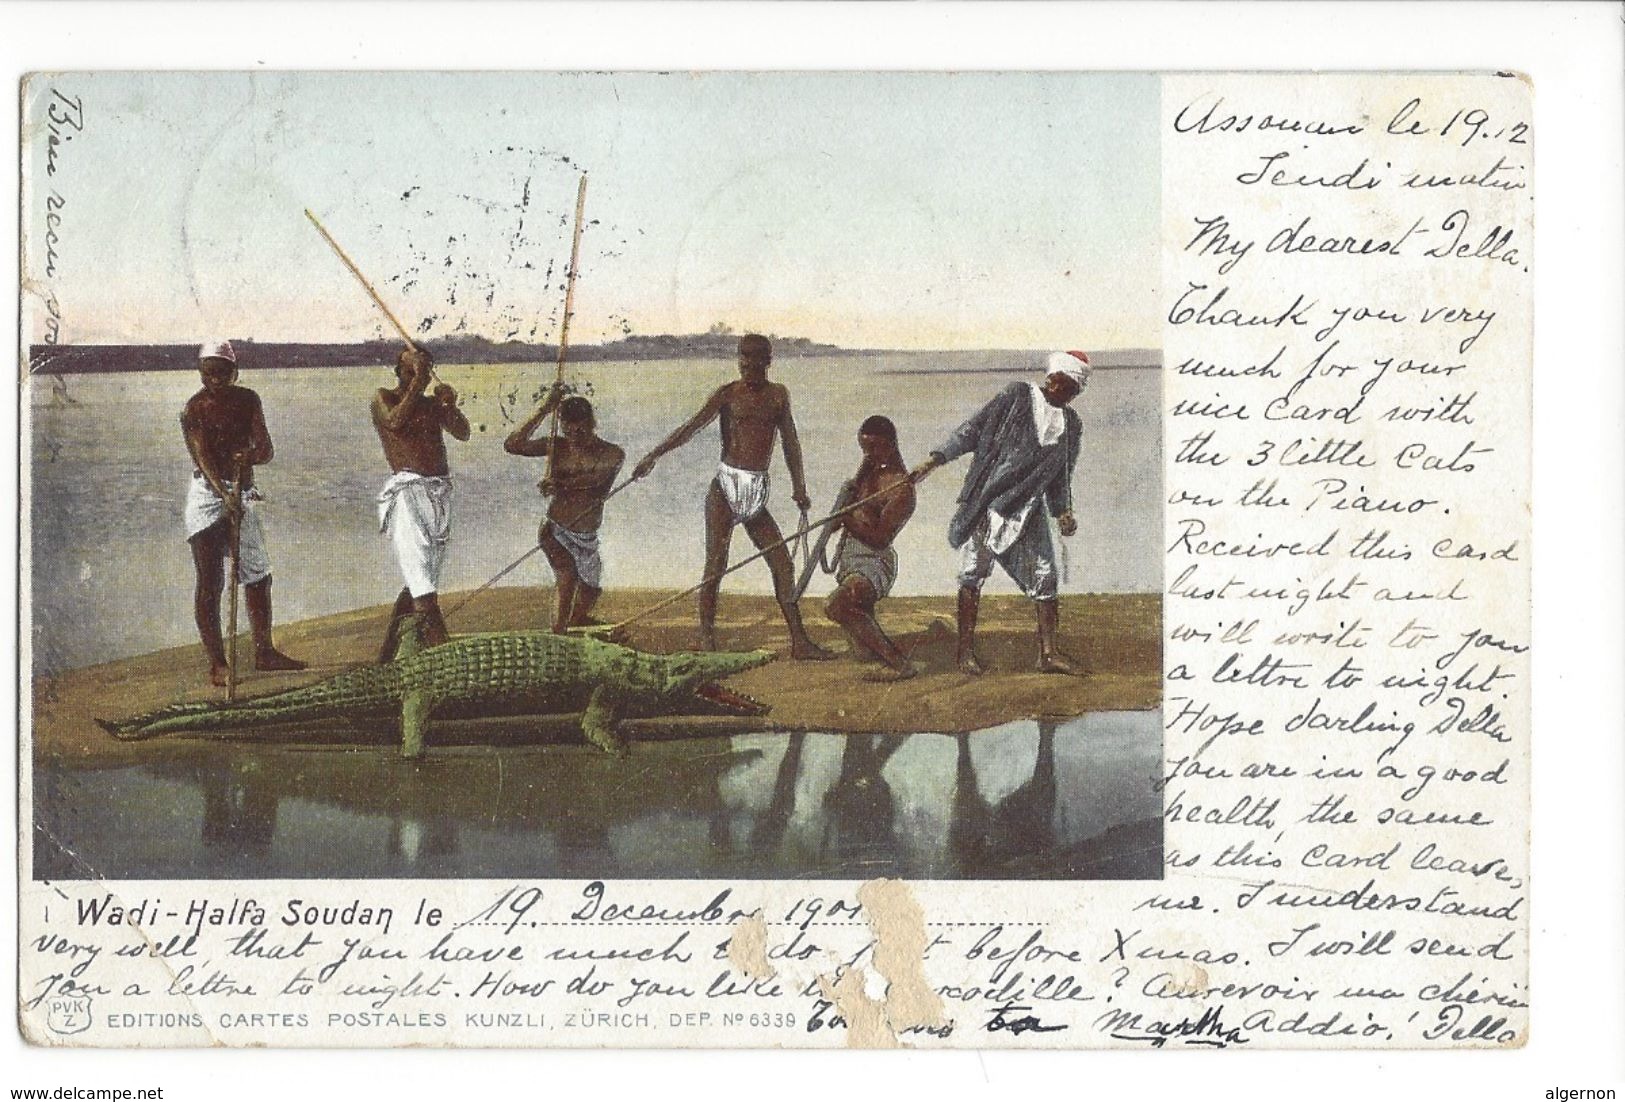 Assouan le 19.12
Jeudi matin
My dearest Della.
Thank you very
much for your
nice Card with
the 3 little Cats
on the Piano.
Received this card
last night and
will write to you
a lettre to night.
Hope darling Della
you are in a good
health, the same
as this Card leaves
me. I understand
Wadi-Halfa Soudan le 19. Decembre 1901
very well, that you have much to do before Xmas. I will send
you a lettre to night. How do you like ? Aurevoir ma chérie
PVK
Z
EDITIONS CARTES POSTALES KUNZLI, ZÜRICH, DEP. No 6339
ta Martha Addio! Della
Bien recu
www.delcampe.net
algernon